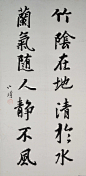 竹陰在地清於水
蘭氣隨人靜不風